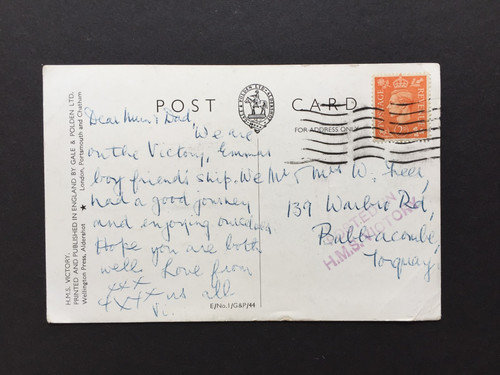 H.M.S. VICTORY.
PRINTED AND PUBLISHED IN ENGLAND BY GALE & POLDEN LTD.
Wellington Press, Aldershot ★ London, Portsmouth and Chatham
POST CARD
FOR ADDRESS ONLY
GALE & POLDEN LTD. ALDERSHOT
Dear Mum & Dad,
We are
on the Victory, Emmas
boy friends ship. We
had a good journey
and enjoying ourselves.
Hope you are both
well Love from
xxx
xxxx us all
Vi.
E/No.1/G&P/44
POSTAGE REVENUE
Mr & Mrs W.
139 Warbro Rd,
Babbacombe,
Torquay.
POSTED IN
H.M.S. VICTORY